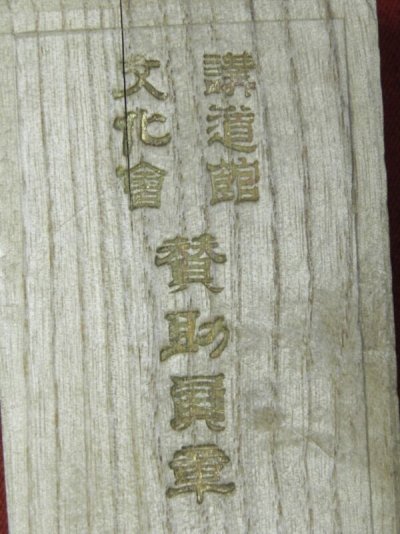 講道館
文化會
賛助員章